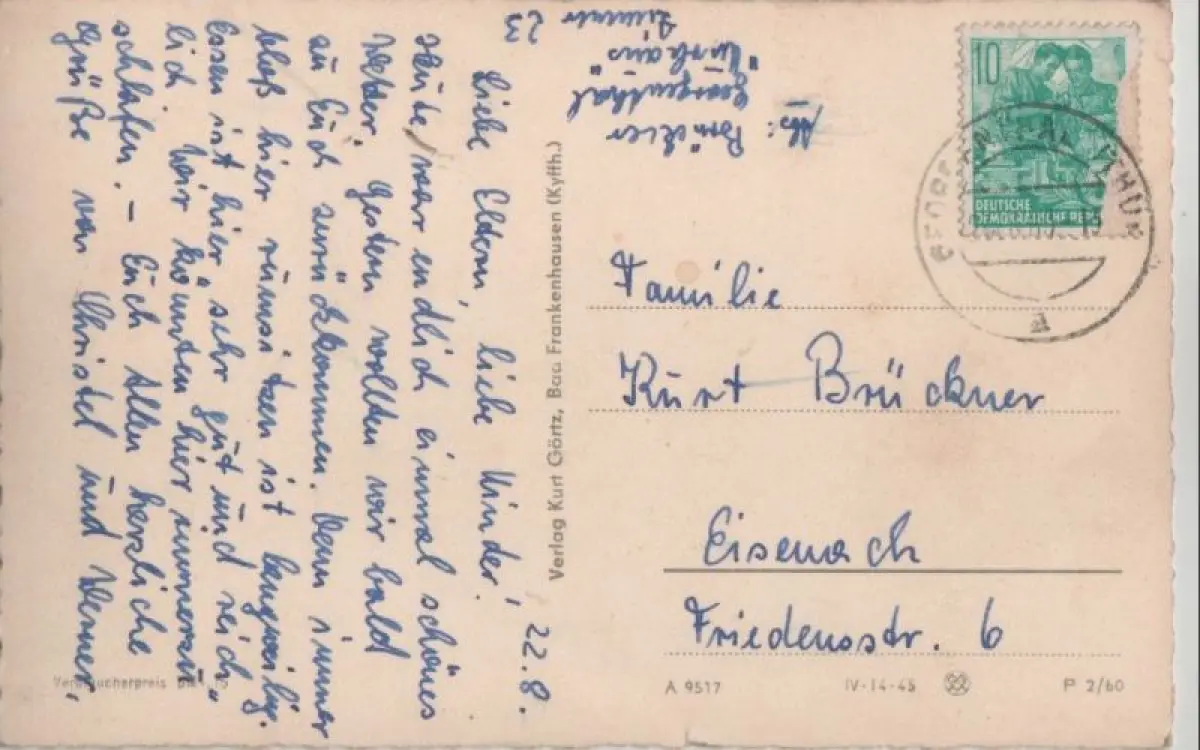 22.8.
Liebe Eltern, liebe Kinder!
Heute war endlich einmal schönes
Wetter. Gestern wollten wir bald
zu Euch zurückkommen. Denn immer
bloß hier rumsitzen ist langweilig.
Essen ist hier sehr gut und reich-
lich. Wir könnten hier immerzu
schlafen. - Euch Allen herzliche
Grüße von Christel und Werner,
Abs: Brückner
Georgenthal
"Kurhaus"
Zimmer 23
10
DEUTSCHE
DEMOKRATISCHE REP
Familie
Kurt Brückner
Eisenach
Friedensstr. 6
Verlag Kurt Görtz, Bad Frankenhausen (Kyffh.)
Verbraucherpreis
A 9517
IV-14-45
P 2/60